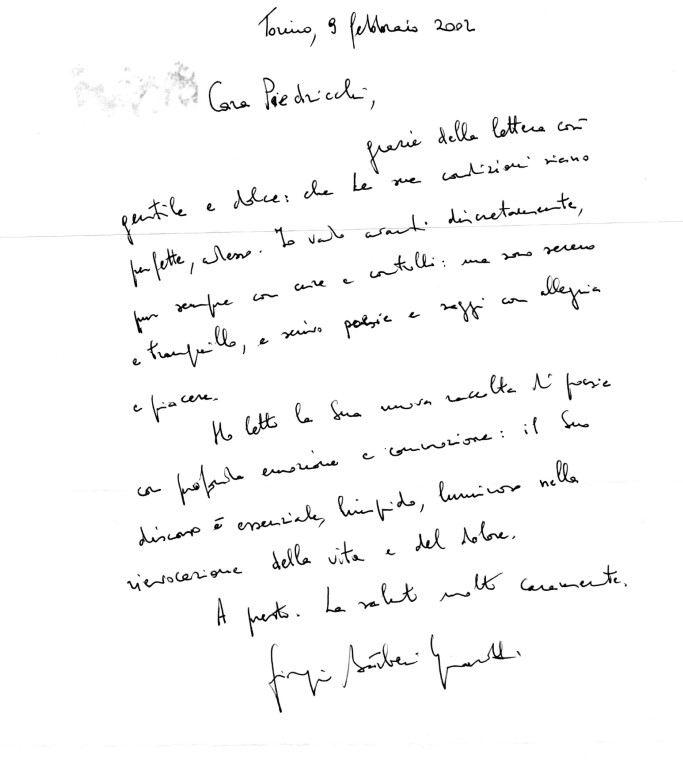 Torino, 9 febbraio 2002
Cara Piedricchi,
grazie della lettera così
gentile e dolce: che le sue condizioni siano
perfette, adesso. Io vado avanti discretamente,
pur sempre con cure e controlli: ma sono sereno
e tranquillo, e scrivo poesie e saggi con allegria
e piacere.
Ho letto la Sua nuova raccolta di poesie
con profonda emozione e commozione: il Suo
discorso è essenziale, limpido, luminoso nella
rievocazione della vita e del dolore.
A presto. La saluto molto caramente.
Giorgio Bàrberi Squarotti